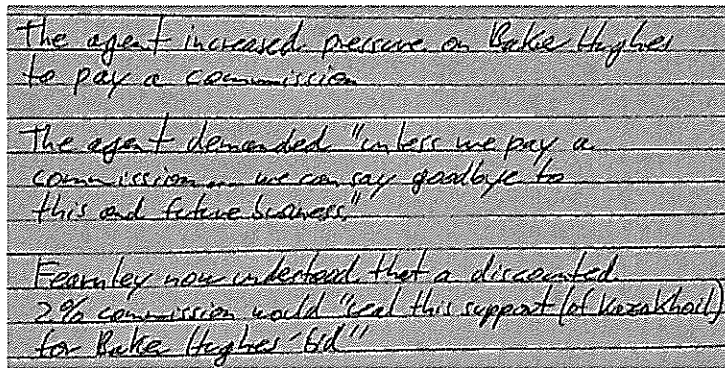 The agent increased pressure on Baker Hughes
to pay a commission
The agent demanded "unless we pay a
commission... we can say goodbye to
this and future business"
Fearnley now understood that a discounted
2% commission would "seal this support (of Kazakhoil)
for Baker Hughes' bid"